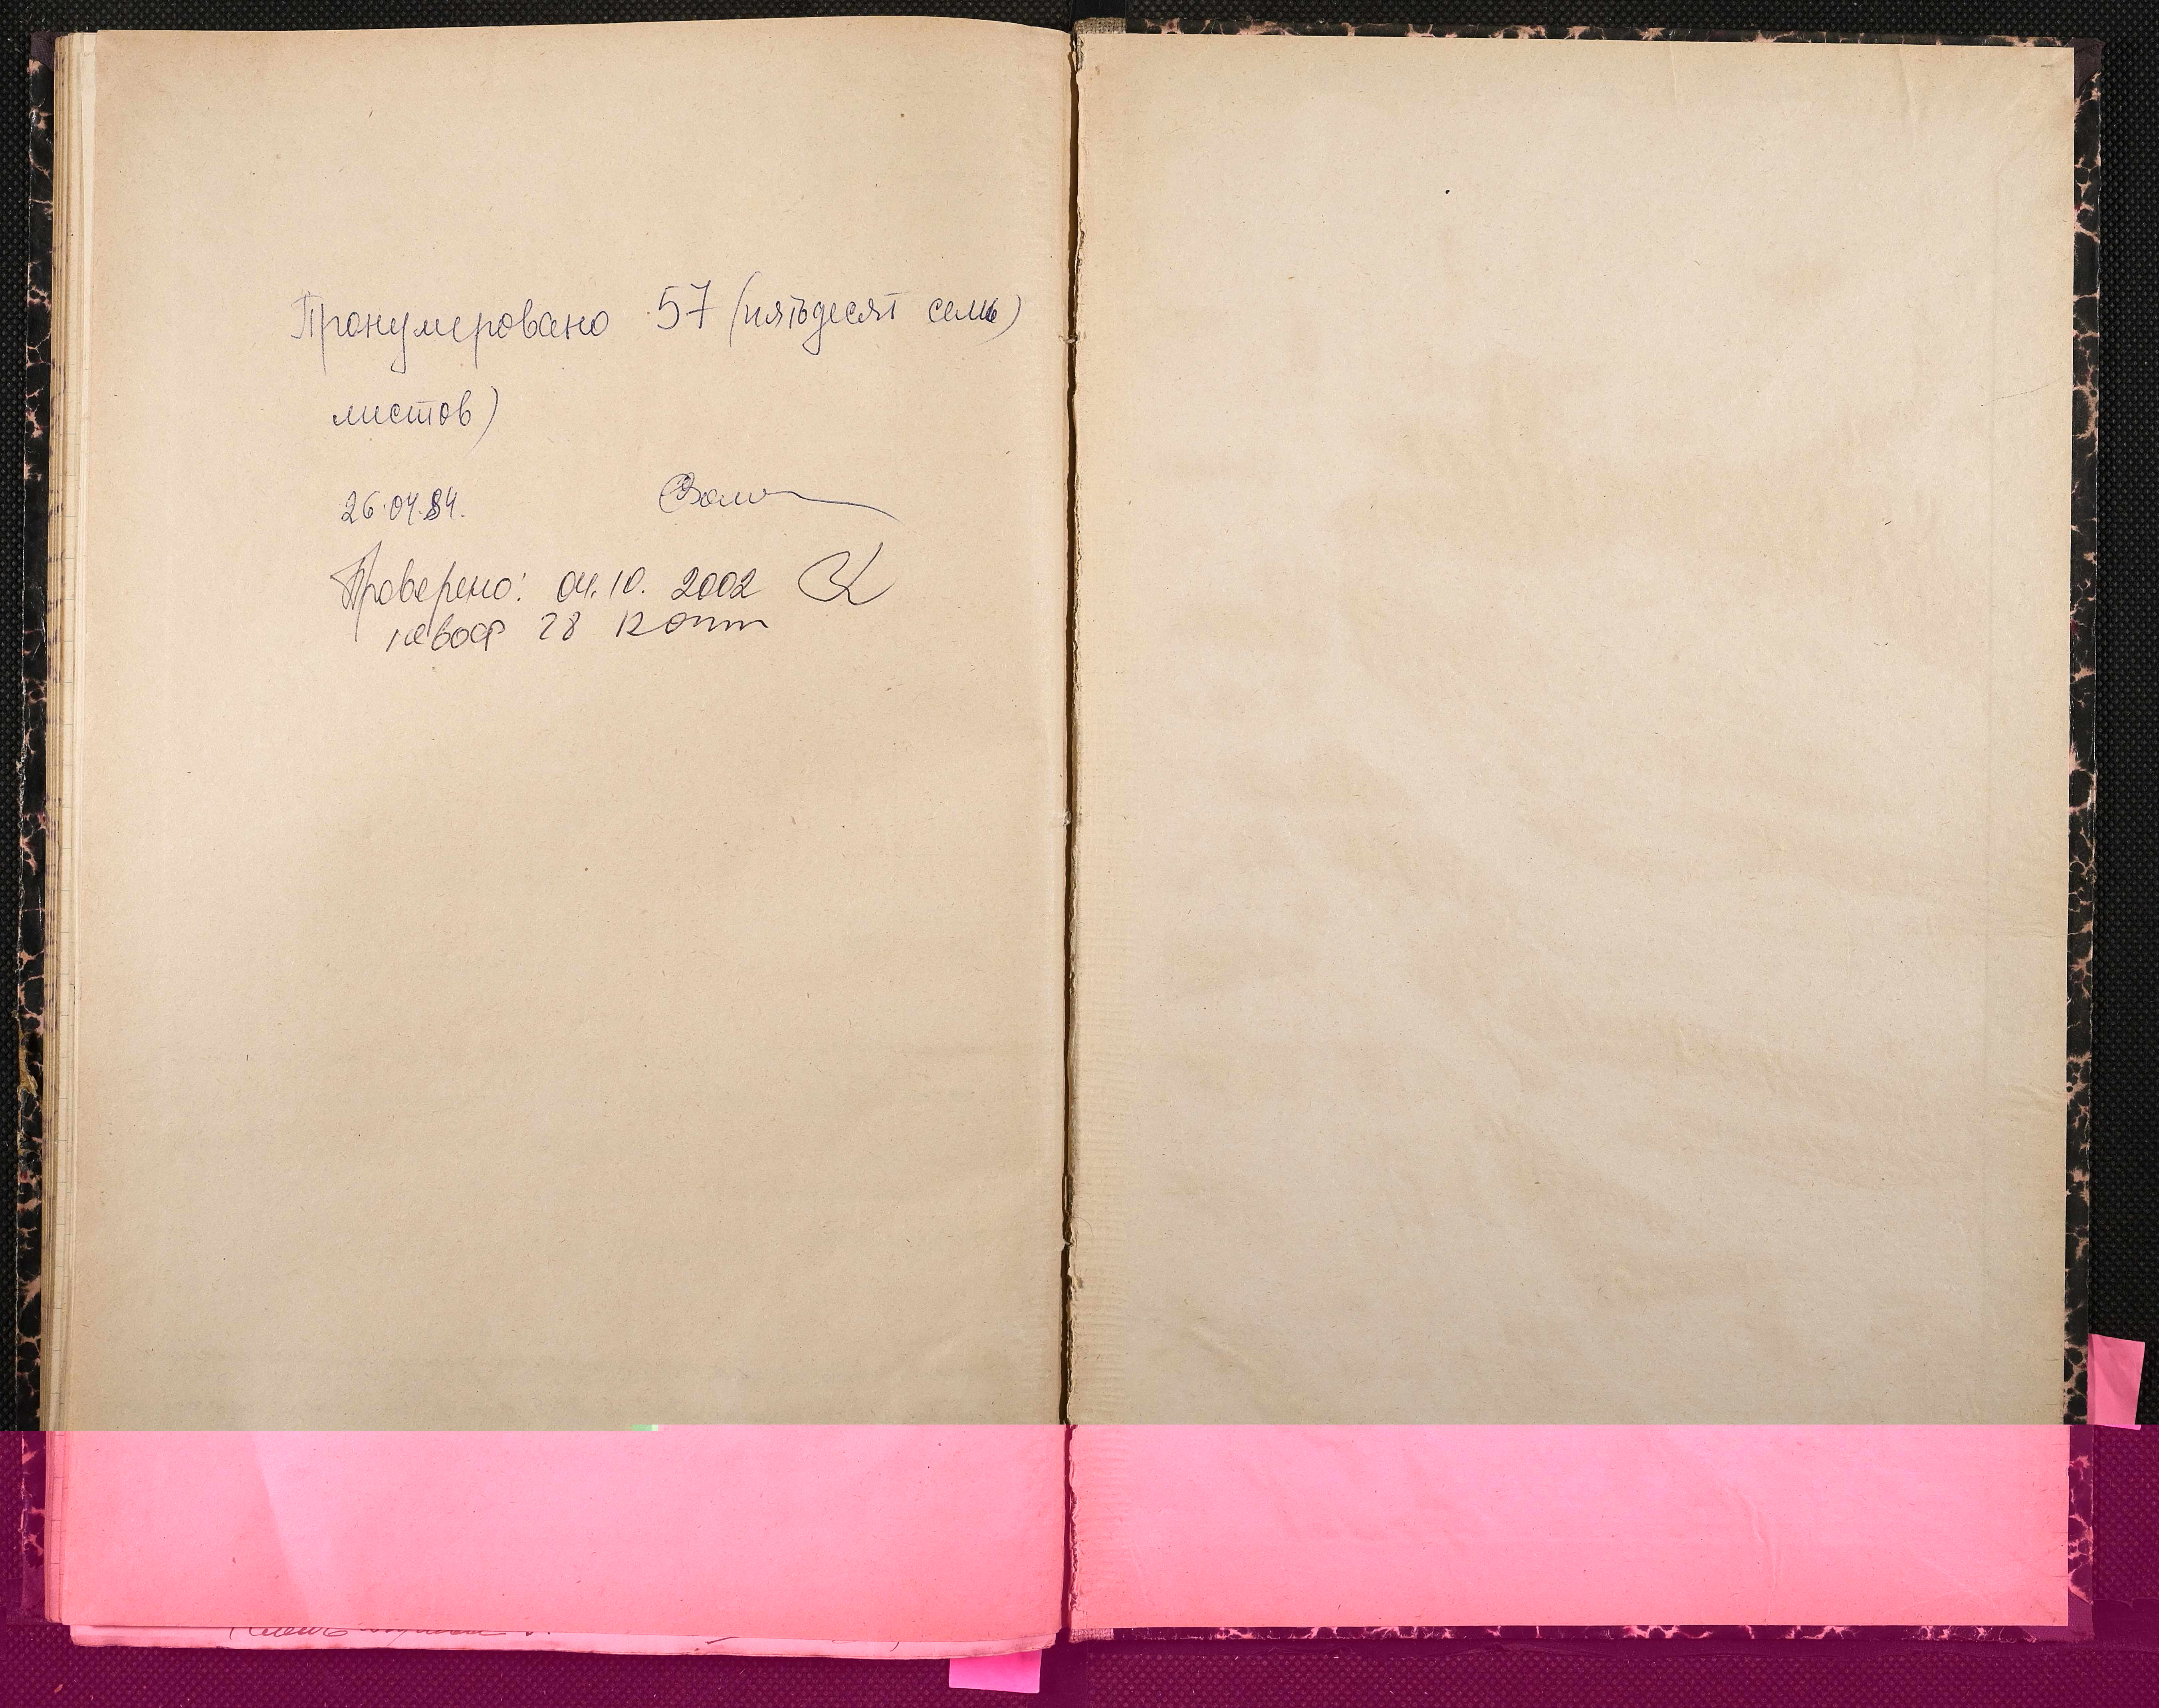 Пронумеровано 57 (пятьдесят семь)
листов)
26.04.84.
Проверено: 04.10. 2002
28